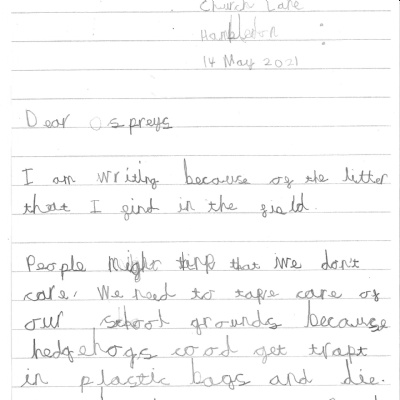 Church Lane
Hambledon
14 May 2021
Dear Ospreys
I am writing because of the litter
that I find in the field.
People might think that we don't
care. We need to take care of
our school grounds because
hedgehogs cood get trapt
in plastic bags and die.